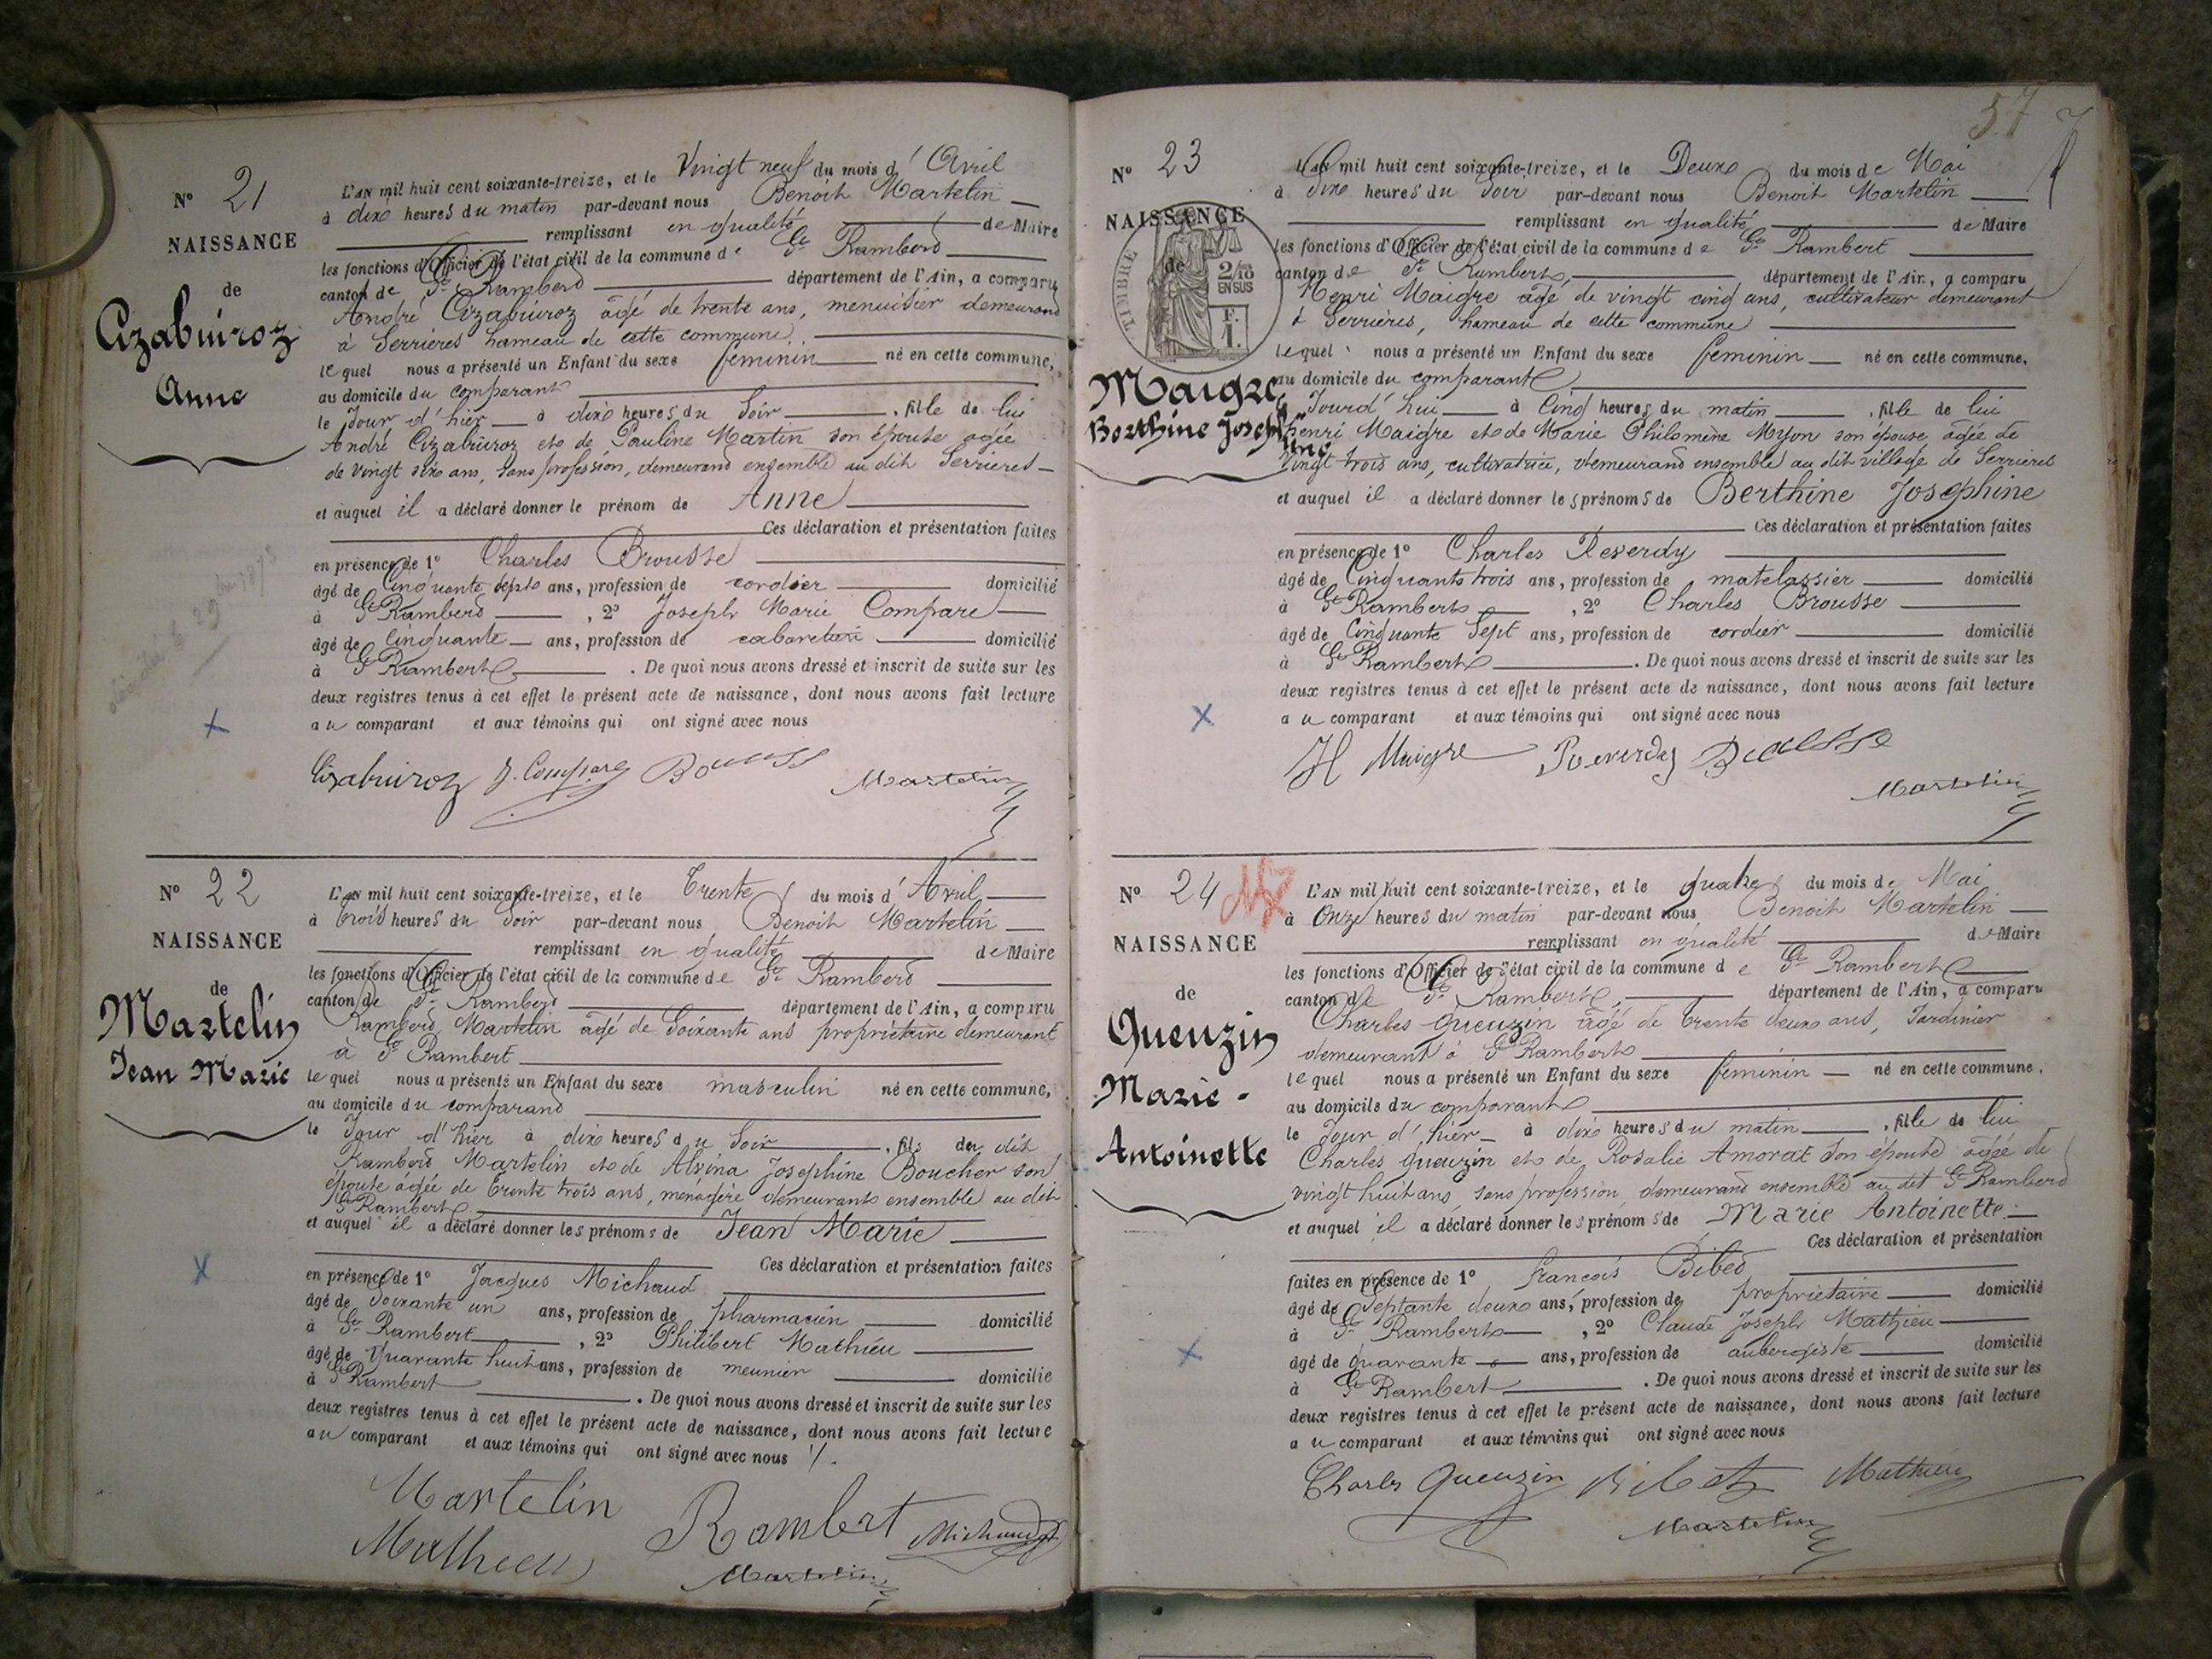 N° 21
NAISSANCE
de
Azabuiroz
Anne
L'AN mil huit cent soixante-treize, et le Vingt neuf du mois d'Avril
à dix heures du matin par-devant nous Benoit Martelin
remplissant en qualité de Maire
les fonctions d'Officier de l'état civil de la commune de St Rambert
canton de St Rambert département de l'Ain, a comparu
André Cizabuiroz âgé de trente ans, menuisier demeurant
à Serrières hameau de cette commune
lequel nous a présenté un Enfant du sexe féminin né en cette commune,
au domicile du comparant
le Jour d'hier à dix heures du Soir, fille de lui
André Cizabuiroz et de Pauline Martin son épouse agée
de vingt six ans, sans profession, demeurant ensemble au dit Serrières
et auquel il a déclaré donner le prénom de Anne
Ces déclaration et présentation faites
en présence de 1° Charles Brousse
âgé de Cinquante sept ans, profession de cordier domicilié
à St Rambert, 2° Joseph Marie Compare
âgé de Cinquante ans, profession de cabaretier domicilié
à St Rambert. De quoi nous avons dressé et inscrit de suite sur les
deux registres tenus à cet effet le présent acte de naissance, dont nous avons fait lecture
au comparant et aux témoins qui ont signé avec nous
Cizabuiroz J. Compare Brousse
Martelin
N° 22
NAISSANCE
de
Martelin
Jean Marie
L'AN mil huit cent soixante-treize, et le Trente du mois d'Avril
à Trois heures du Soir par-devant nous Benoit Martelin
remplissant en qualité de Maire
les fonctions d'Officier de l'état civil de la commune de St Rambert
canton de St Rambert département de l'Ain, a comparu
Rambert Martelin âgé de Soixante ans propriétaire demeurant
à St Rambert
lequel nous a présenté un Enfant du sexe masculin né en cette commune,
au domicile du comparant
le Jour d'hier à dix heures du Soir, fils du dit
Rambert Martelin et de Alvina Josephine Boucher son
épouse agée de Trente trois ans, menagère demeurant ensemble au dit
St Rambert
et auquel il a déclaré donner les prénoms de Jean Marie
Ces déclaration et présentation faites
en présence de 1° Jacques Michaud
âgé de Soixante un ans, profession de pharmacien domicilié
à St Rambert, 2° Philibert Mathieu
âgé de Quarante huit ans, profession de meunier domicilié
à St Rambert. De quoi nous avons dressé et inscrit de suite sur les
deux registres tenus à cet effet le présent acte de naissance, dont nous avons fait lecture
au comparant et aux témoins qui ont signé avec nous
Martelin Rambert Michaud
Mathieu
Martelin
57
N° 23
NAISSANCE
de
TIMBRE
2/10
EN SUS
F.
1.
Maigre
Berthine Joséphine
L'AN mil huit cent soixante-treize, et le Deux du mois de Mai
à dix heures du Soir par-devant nous Benoit Martelin
remplissant en qualité de Maire
les fonctions d'Officier de l'état civil de la commune de St Rambert
canton de St Rambert, département de l'Ain, a comparu
Henri Maigre agé de vingt cinq ans, cultivateur demeurant
à Serrières, hameau de cette commune
lequel nous a présenté un Enfant du sexe féminin né en cette commune,
au domicile du comparant
Jourd'hui à Cinq heures du matin, fille de lui
henri Maigre et de Marie Philomène Myon son épouse agée de
vingt trois ans, cultivatrice, demeurant ensemble au dit village de Serrières
et auquel il a déclaré donner les prénoms de Berthine Josephine
Ces déclaration et présentation faites
en présence de 1° Charles Reverdy
âgé de Cinquante trois ans, profession de matelassier domicilié
à St Rambert, 2° Charles Brousse
âgé de Cinquante Sept ans, profession de cordier domicilié
à St Rambert. De quoi nous avons dressé et inscrit de suite sur les
deux registres tenus à cet effet le présent acte de naissance, dont nous avons fait lecture
au comparant et aux témoins qui ont signé avec nous
H Maigre Reverdy Brousse
Martelin
N° 24
NAISSANCE
de
Queuzin
Marie-
Antoinette
L'AN mil huit cent soixante-treize, et le quatre du mois de Mai
à Onze heures du matin par-devant nous Benoit Martelin
remplissant en qualité de Maire
les fonctions d'Officier de l'état civil de la commune de St Rambert
canton de St Rambert, département de l'Ain, a comparu
Charles queuzin âgé de trente deux ans, Jardinier
demeurant à St Rambert
lequel nous a présenté un Enfant du sexe féminin né en cette commune,
au domicile du comparant
le Jour d'hier à dix heures du matin, fille de lui
Charles queuzin et de Rosalie Amorat son épouse agée de
vingt huit ans, sans profession, demeurant ensemble au dit St Rambert
et auquel il a déclaré donner les prénoms de Marie Antoinette
Ces déclaration et présentation
faites en présence de 1° françois Bibet
âgé de Septante deux ans, profession de propriétaire domicilié
à St Rambert, 2° Claude Joseph Mathieu
âgé de quarante ans, profession de aubergiste domicilié
à St Rambert. De quoi nous avons dressé et inscrit de suite sur les
deux registres tenus à cet effet le présent acte de naissance, dont nous avons fait lecture
au comparant et aux témoins qui ont signé avec nous
Charles Queuzin Bibet Mathieu
Martelin